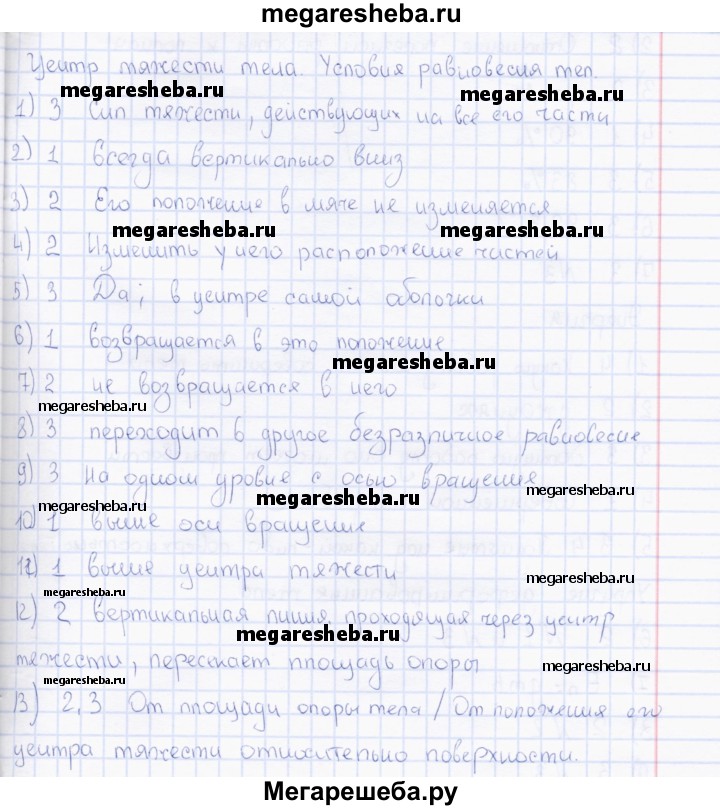 megaresheba.ru
Центр тяжести тела. Условия равновесия тел.
megaresheba.ru megaresheba.ru
1) 3 Сил тяжести, действующих на все его части
2) 1 Всегда вертикально вниз
megaresheba.ru
3) 2 Его положение в мяче не изменяется
megaresheba.ru megaresheba.ru
4) 2 Изменить у него расположение частей
5) 3 Да; в центре самой оболочки
6) 1 возвращается в это положение
megaresheba.ru
7) 2 не возвращается в него
megaresheba.ru
8) 3 переходит в другое безразличное равновесие
9) 3 На одном уровне с осью вращения
megaresheba.ru megaresheba.ru megaresheba.ru
10) 1 выше оси вращения
11) 1 выше центра тяжести
megaresheba.ru megaresheba.ru
12) 2 вертикальная линия, проходящая через центр
megaresheba.ru
тяжести, пересекает площадь опоры
megaresheba.ru megaresheba.ru
13) 2,3 От площади опоры тела / От положения его
центра тяжести относительно поверхности.
Мегарешеба.ру